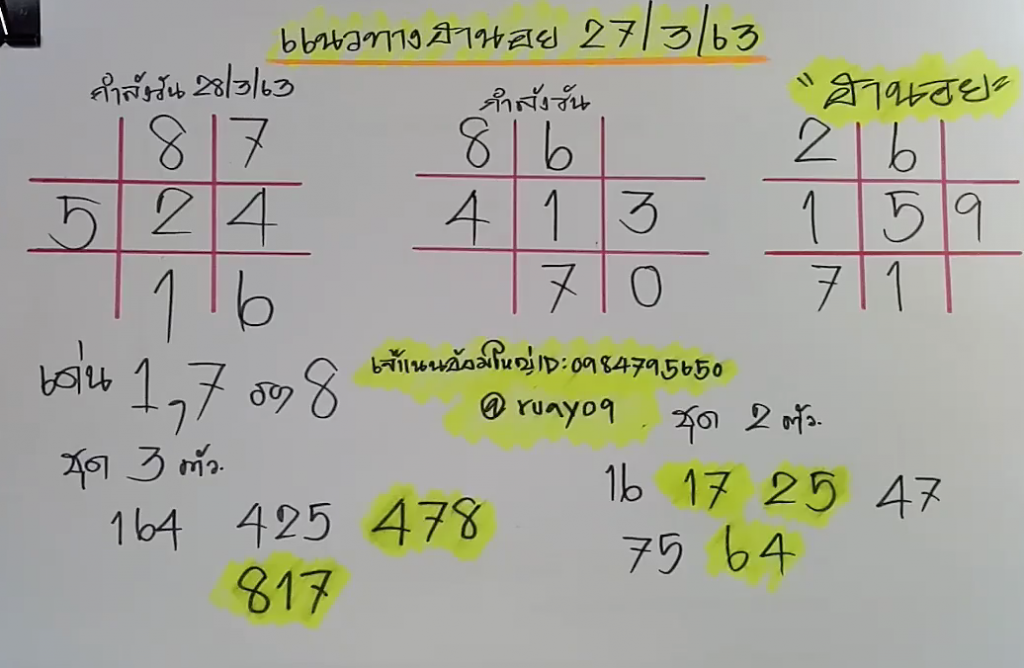 แนวทางฮานอย 27/3/63
กำลังวัน 28/3/63
8 7
5 2 4
1 6
กำลังวัน
8 6
4 1 3
7 0
"ฮานอย"
2 6
1 5 9
7 1
เด่น 1,7 รอง 8
เจ๊แนนอ้อมใหญ่ID:0984795650
@ruay09
ชุด 3 ตัว.
164 425 478
817
ชุด 2 ตัว.
16 17 25 47
75 64